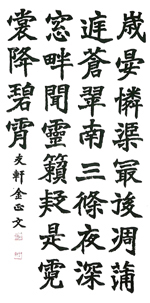 歲晏憐渠最後凋滿
庭蒼翠兩三條夜深
窓畔聞靈籟疑是霓
裳降碧霄
軒金正文